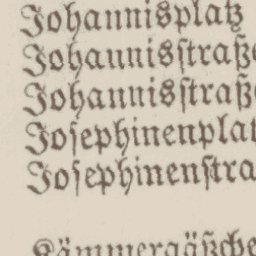 Johannisplatz
Johannisſtraße
Johannisſtraß
Joſephinenplat
Joſephinenſtra
Kämmergäßche